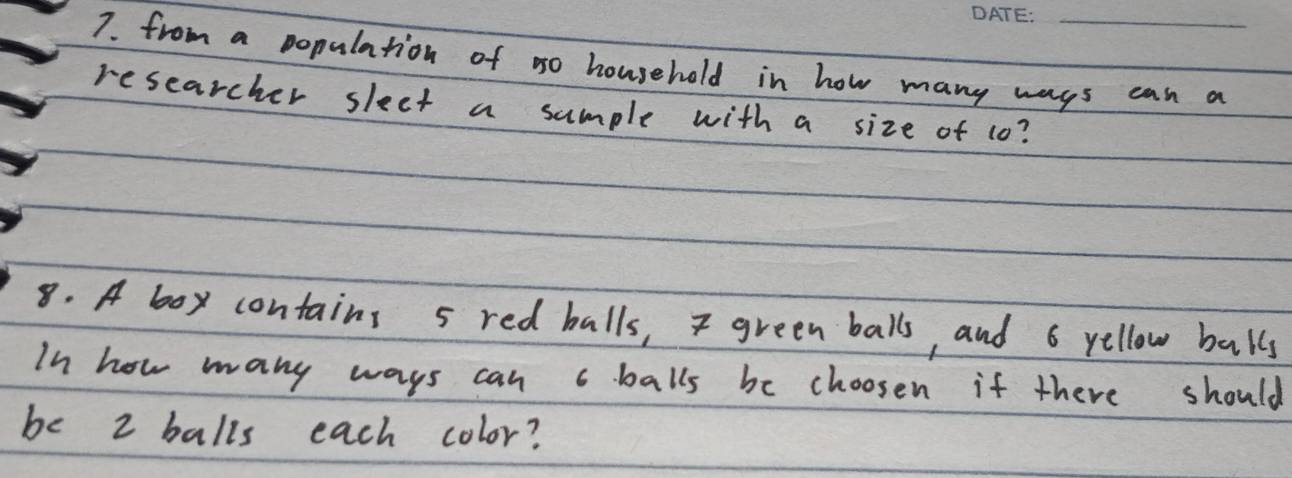 DATE:
7. from a population of 50 household in how many ways can a
researcher slect a sample with a size of 10?
8. A box contains 5 red balls, 7 green balls, and 6 yellow balls
In how many ways can 6 balls be choosen if there should
be 2 balls each color?